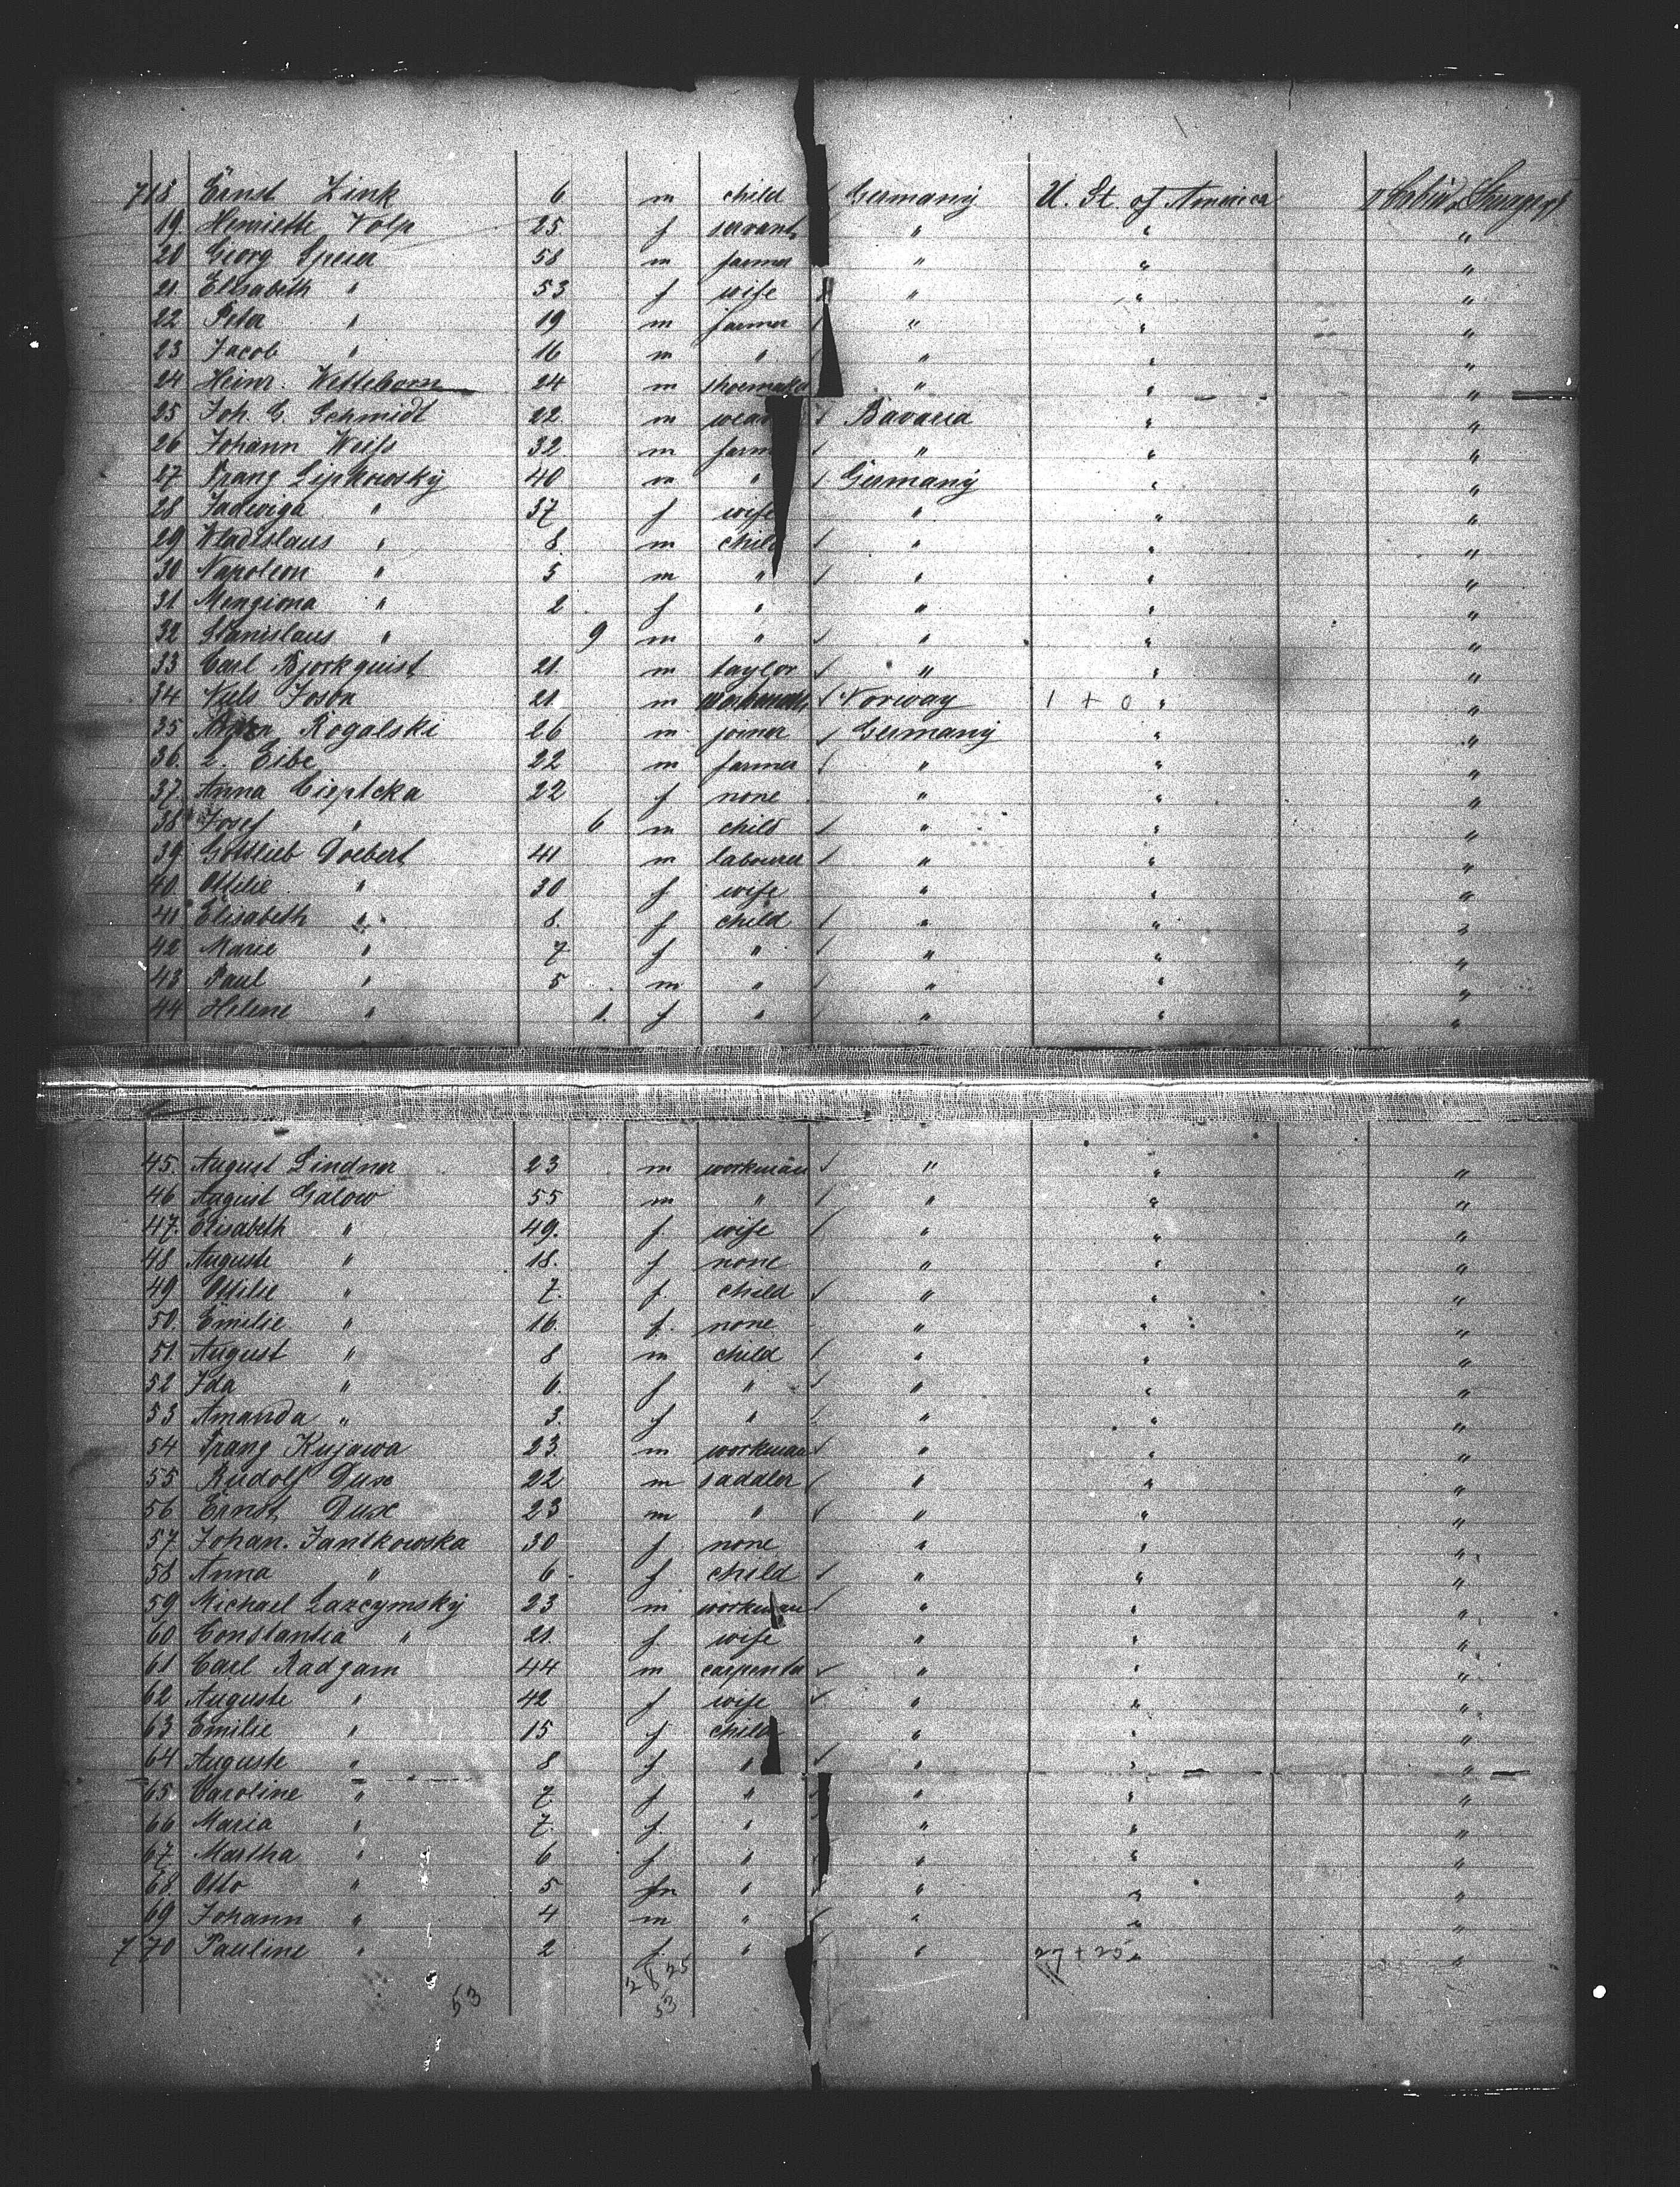 718 Ernst Zink 6 m child Germany U. St. of America
19 Henriette Volp 25 f servant " " "
20 Georg Speier 58 m farmer " " "
21 Elisabeth " 53 f wife " " "
22 Peter " 19 m farmer " " "
23 Jacob " 16 m " " " "
24 Heinr. Wetteborn 24 m shoemaker " " "
25 Joh. G. Schmidt 22 m Bavaria " "
26 Johann Weiss 32 m farm " " "
27 Franz Lipkowsky 40 m " Germany " "
28 Jadwiga " 37 f wife " " "
29 Wladislaus " 8 m child " " "
30 Napoleon " 5 m " " " "
31 " 2 f " " " "
32 Stanislaus " 9 m " " " "
33 Carl Bjorkquist 21 m taylor " " "
34 21 m Norway 1 + 0 " "
35 Rogalski 26 m joiner Germany " "
36 Eibe 22 m farmer " " "
37 Anna 22 f none " " "
38 Josef " 6 m child " " "
39 Gottlieb Doebert 41 m labourer " " "
40 Ottilie " 30 f wife " " "
41 Elisabeth " 8 f child " " "
42 Marie " 7 f " " " "
43 Paul " 5 m " " " "
44 Helene " 1 f " " " "
45 August Lindner 23 m workman " " "
46 August Galow 55 m " " " "
47 Elisabeth " 49 f wife " " "
48 Auguste " 18 f none " " "
49 Ottilie " 7 f child " " "
50 Emilie " 16 f none " " "
51 August " 8 m child " " "
52 Ida " 6 f " " " "
53 Amanda " 3 f " " " "
54 Franz Kujawa 23 m workman " " "
55 Rudolf Dux 22 m saddler " " "
56 Ernst Dux 23 m " " " "
57 Johan. Jantkowska 30 f none " " "
58 Anna " 6 f child " " "
59 Michael Lazcymsky 23 m workman " " "
60 Constantia " 21 f wife " " "
61 Carl Radzam 44 m carpenter " " "
62 Auguste " 42 f wife " " "
63 Emilie " 15 f child " " "
64 Auguste " 8 f " " " "
65 Caroline " 7 f " " " "
66 Maria " 7 f " " " "
67 Martha " 6 f " " " "
68 Otto " 5 m " " " "
69 Johann " 4 m " " " "
770 Pauline " 2 f " " 27 + 25 " "
28 25
53 53